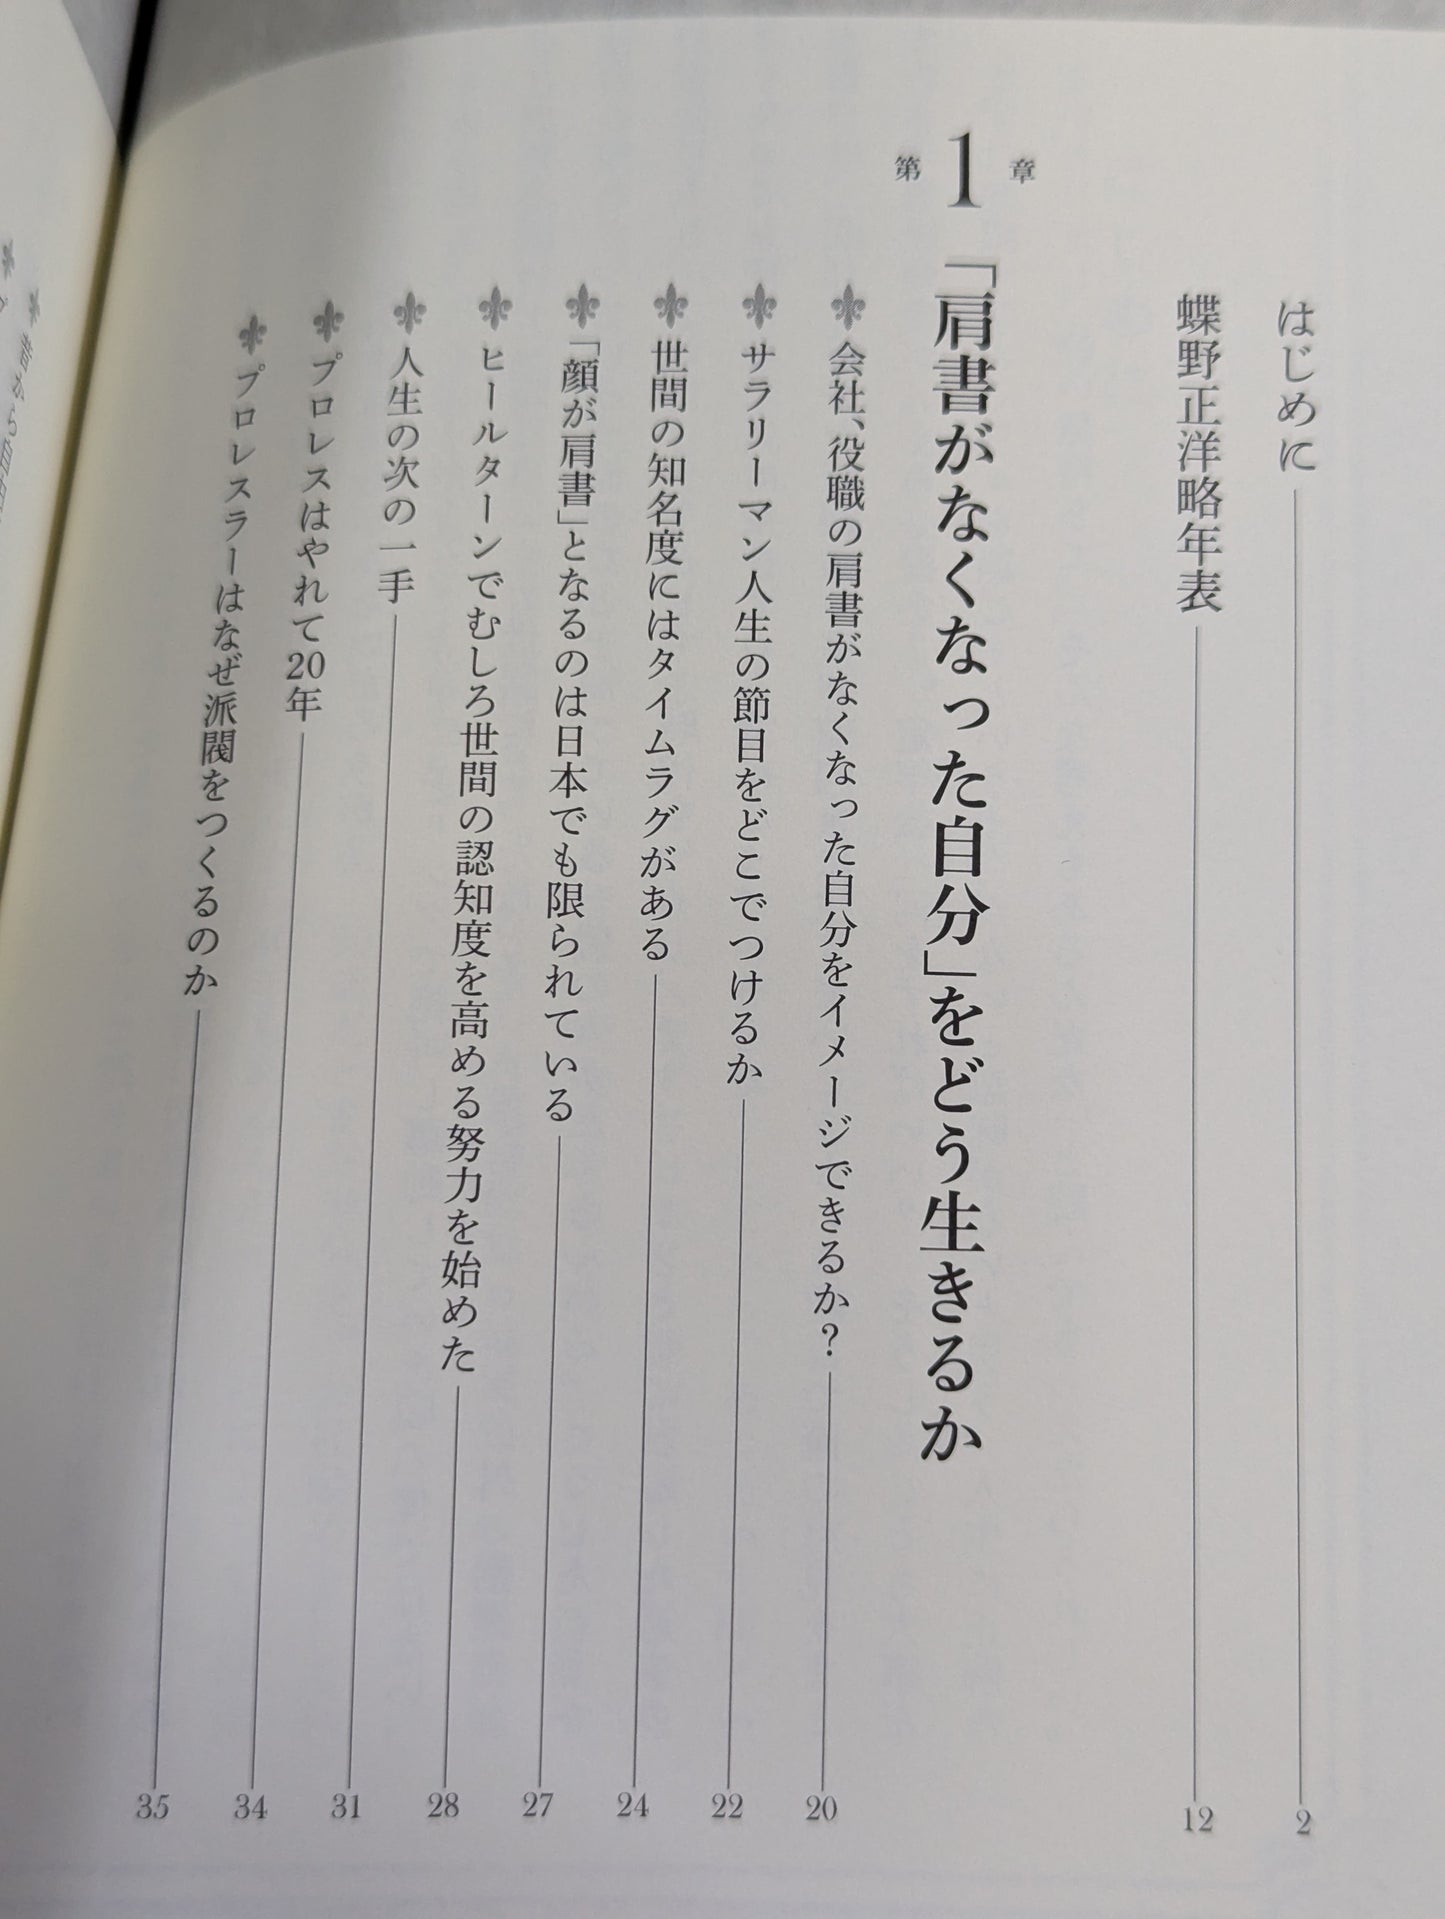 はじめに 2
蝶野正洋略年表 12
第1章 「肩書がなくなった自分」をどう生きるか
会社、役職の肩書がなくなった自分をイメージできるか? 20
サラリーマン人生の節目をどこでつけるか 22
世間の知名度にはタイムラグがある 24
「顔が肩書」となるのは日本でも限られている 27
ヒールターンでむしろ世間の認知度を高める努力を始めた 28
人生の次の一手 31
プロレスはやれて20年 34
プロレスラーはなぜ派閥をつくるのか 35